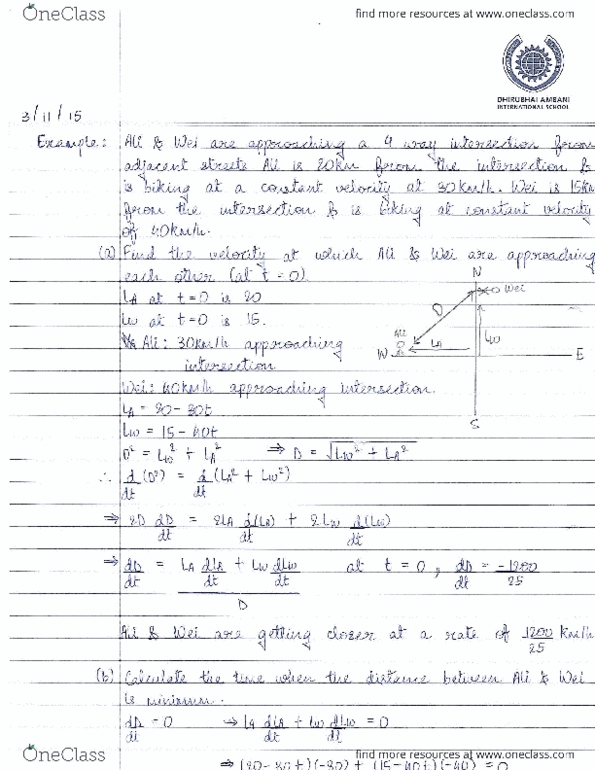 OneClass
find more resources at www.oneclass.com
DHIRUBHAI AMBANI
INTERNATIONAL SCHOOL
3/11/15
Example: Ali & Wei are approaching a 4 way intersection from
adjacent streets Ali is 20km from the intersection &
is biking at a constant velocity at 30km/h. Wei is 15km
from the intersection & is biking at constant velocity
of 40km/h.
(a) Find the velocity at which Ali & Wei are approaching
each other (at t = 0).
N
Wei
LA at t=0 is 20
D
Lw at t=0 is 15.
Ali
LA
Lw
W
E
S
Ali: 30km/h approaching
intersection
Wei: 40km/h approaching intersection.
LA = 20 - 30t
Lw = 15 - 40t
D² = Lw² + LA² ⇒ D = √Lw² + LA²
∴ d/dt (D²) = d/dt (LA² + Lw²)
⇒ 2D dD/dt = 2LA d(LA)/dt + 2Lw d(Lw)/dt
⇒ dD/dt = LA dLA/dt + Lw dLw/dt / D at t = 0, dD/dt = -1200/25
Ali & Wei are getting closer at a rate of 1200/25 km/h
(b) Calculate the time when the distance between Ali & Wei
is minimum.
dD/dt = 0 ⇒ LA dLA/dt + Lw dLw/dt = 0
⇒ (20-30t)(-30) + (15-40t)(-40) = 0
OneClass
find more resources at www.oneclass.com